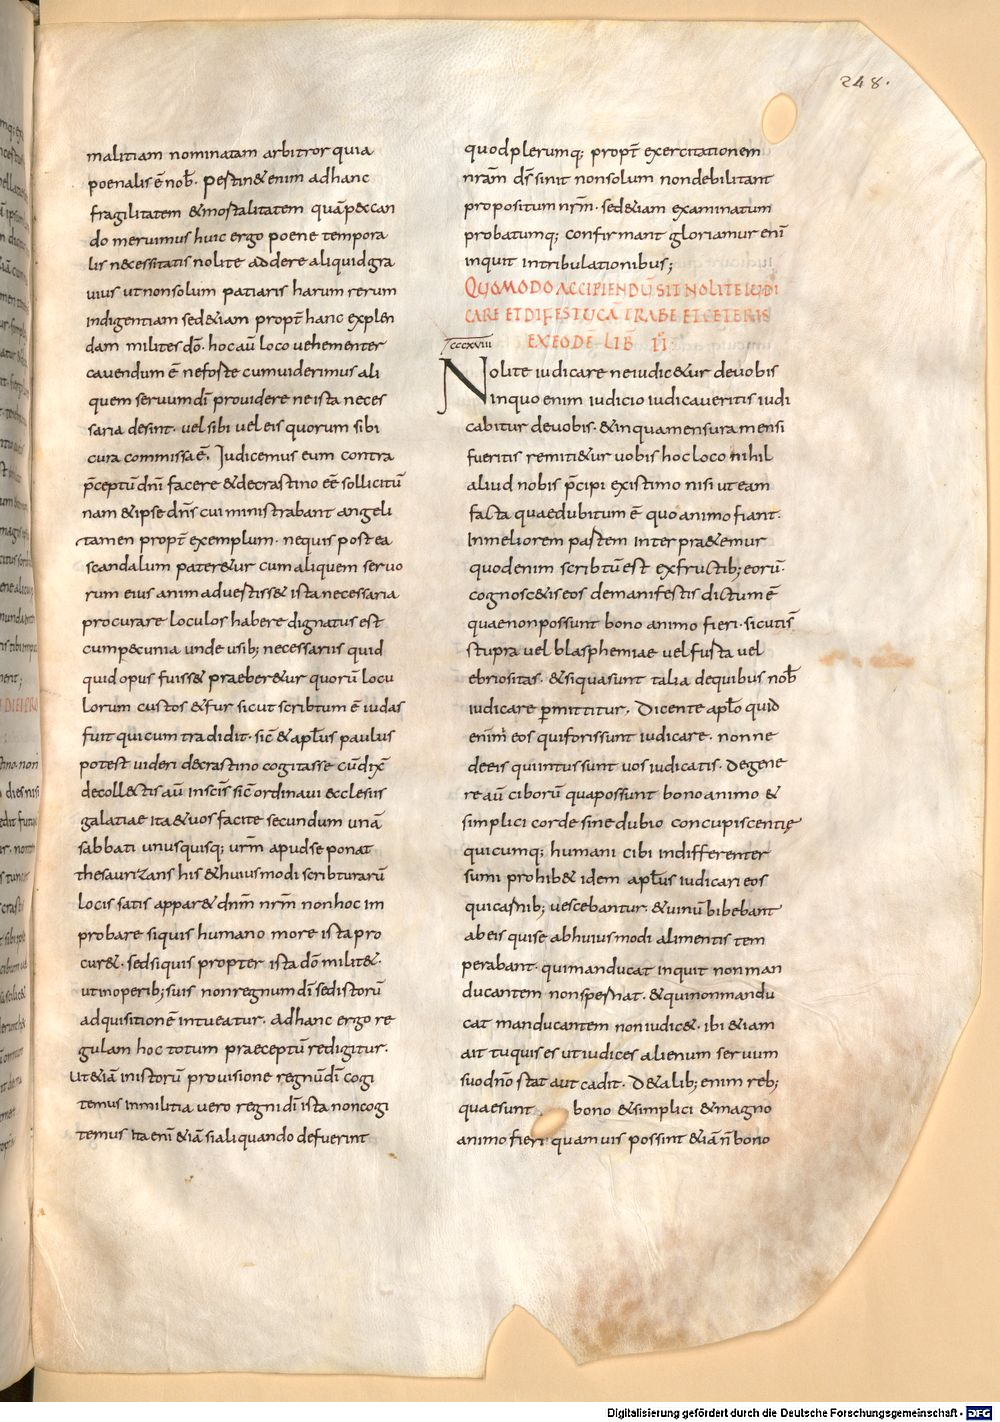 248.
malitiam nominatam arbitror quia
poenalis ē nob̄. pertin& enim adhanc
fragilitatem &mortalitatem quāpeccan
do meruimus huic ergo poene tempora
lis necessitatis nolite addere aliquidgra
uius utnonsolum patiaris harum rerum
indigentiam sed&iam propt̄ hanc explen
dam milites dō. hocaū loco uehementer
cauendum ē neforte cumuiderimus ali
quem seruumdī prouidere neista neces
saria desint. uelsibi ueleis quorum sibi
cura commissa ē. Iudicemus eum contra
p̄ceptūdnī facere &decrastino eē sollicitū
nam &ipse dns̄ cui ministrabant angeli
tamen propt̄ exemplum. nequis postea
scandalum pater&ur cum aliquem seruo
rum eius animaduertiss& ista necessaria
procurare loculos habere dignatus est
cumpecunia unde usib; necessariis quid
quid opus fuiss& praeber&ur quorū locu
lorum custos &fur sicut scribtum ē iudas
fuit qui eum tradidit. sic̄ &apłus paulus
potest uideri decrastino cogitasse cūdix̄
decollectis aū inscīs sic̄ ordinaui ecclesiis
galatiae ita&uos facite secundum unā
sabbati unusquisq; urm̄ apudse ponat
thesaurizans his &huiusmodi scribturarū
locis satis appar& dnm̄ nrm̄ nonhoc im
probare siquis humano more ista pro
cur&. sedsiquis propter ista dō milit&.
utinoperib; suis nonregnum dī sedistorū
adquisitionē intueatur. Adhanc ergo re
gulam hoc totum praeceptū redigitur.
ut&iā inistorū prouisione regnūdī cogi
temus inmilitia uero regni dī ista noncogi
temus ita enī &iā sialiquando defuerint
quodplerumq; propt̄ exercitationem
nrām ds̄ sinit nonsolum nondebilitant
propositum nrm̄. sed&iam examinatum
probatumq; confirmant gloriamur enī
inquit intribulationibus;
QUOMODO ACCIPIENDŪ SIT NOLITE IUDI
CARE ET DI FESTUCA TRABE ET CETERIS
EX EODĒ LIB II
cccxviii
Nolite iudicare neiudic&ur deuobis
inquo enim iudicio iudicaueritis iudi
cabitur deuobis. &inquamensura mensi
fueritis remiti&ur uobis hoc loco nihil
aliud nobis p̄cipi existimo nisi ut eam
facta quaedubitum ē quo animo fiant.
Inmeliorem partem inter pra&emur
quodenim scribtū est exfructib; eorū.
cognosc&is eos demanifestis dictum ē
quaenonpossunt bono animo fieri. sicutis̄
stupra uel blasphemiae uel furta uel
ebriositas. &siquasunt talia dequibus nob̄
iudicare p̱mittitur. Dicente apło quid
enim̄ eos quiforissunt iudicare. nonne
deeis quiintussunt uos iudicatis. Degene
re aū ciborū quapossunt bono animo &
simplici corde sine dubio concupiscentię
quicumq; humani cibi indifferenter
sumi prohib& idem apłus iudicari eos
quicarnib; uescebantur. &uinū bibebant
abeis quise abhuiusmodi alimentis tem
perabant. qui manducat inquit non man
ducantem nonspernat. &quinonmandu
cat manducantem noniudic&. ibi &iam
ait tuquis es ut iudices alienum seruum
suo dnō stat aut cadit. De&alib; enim reb;
quaesunt bono &simplici &magno
animo fieri quamuis possint &iā n̄ bono
Digitalisierung gefördert durch die Deutsche Forschungsgemeinschaft - DFG